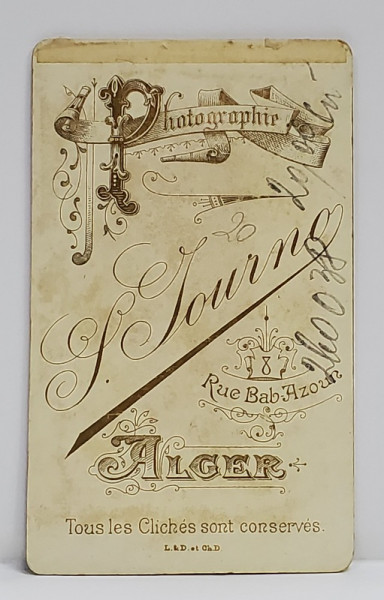 Photographie
20
S. Journo
8
Rue Bab-Azoun
ALGER
Tous les Clichés sont conservés.
L. & D. et Ch. D.